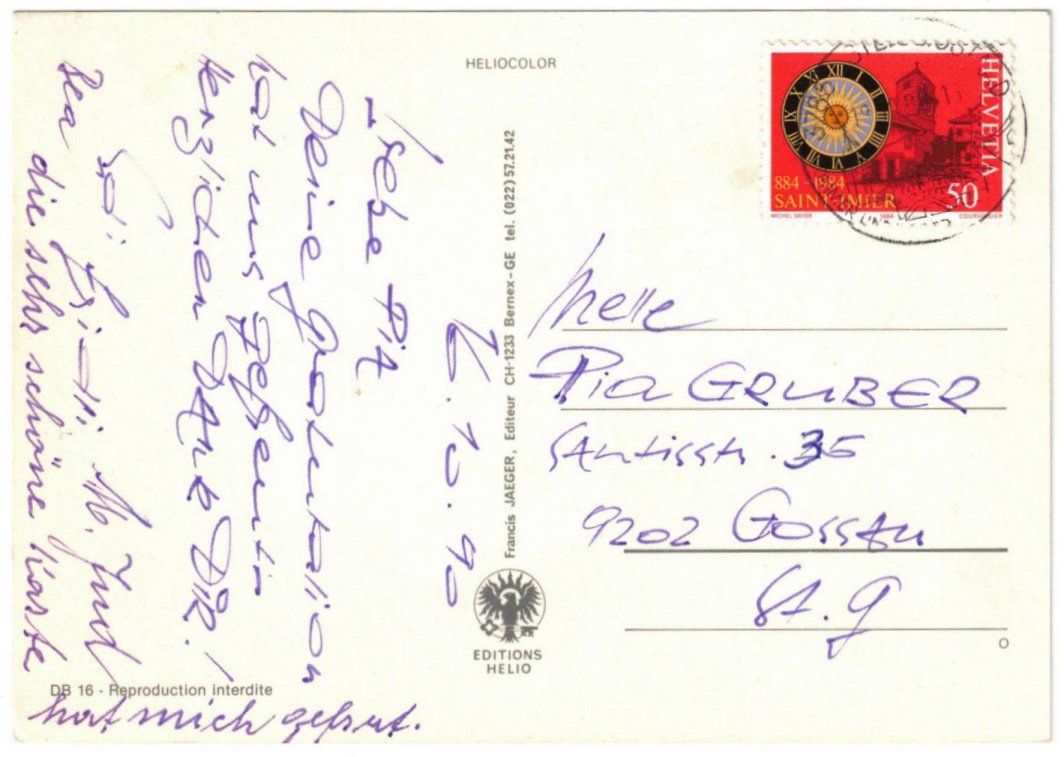 HELIOCOLOR
HELVETIA
884 - 1984
SAINT-IMIER
50
MICHEL DAYER 1984 COURVOISIER
6.10.90
Liebe Pia
Deine Gratulation
hat uns
herzlichen DANK DIR!
M.
die sehr schöne Karte
hat mich gefreut.
Francis JAEGER, Editeur CH-1233 Bernex-GE tel. (022) 57.21.42
EDITIONS
HELIO
DB 16 - Reproduction interdite
Melle
Pia GRUBER
SÄntisstr. 35
9202 Gossau
St. G